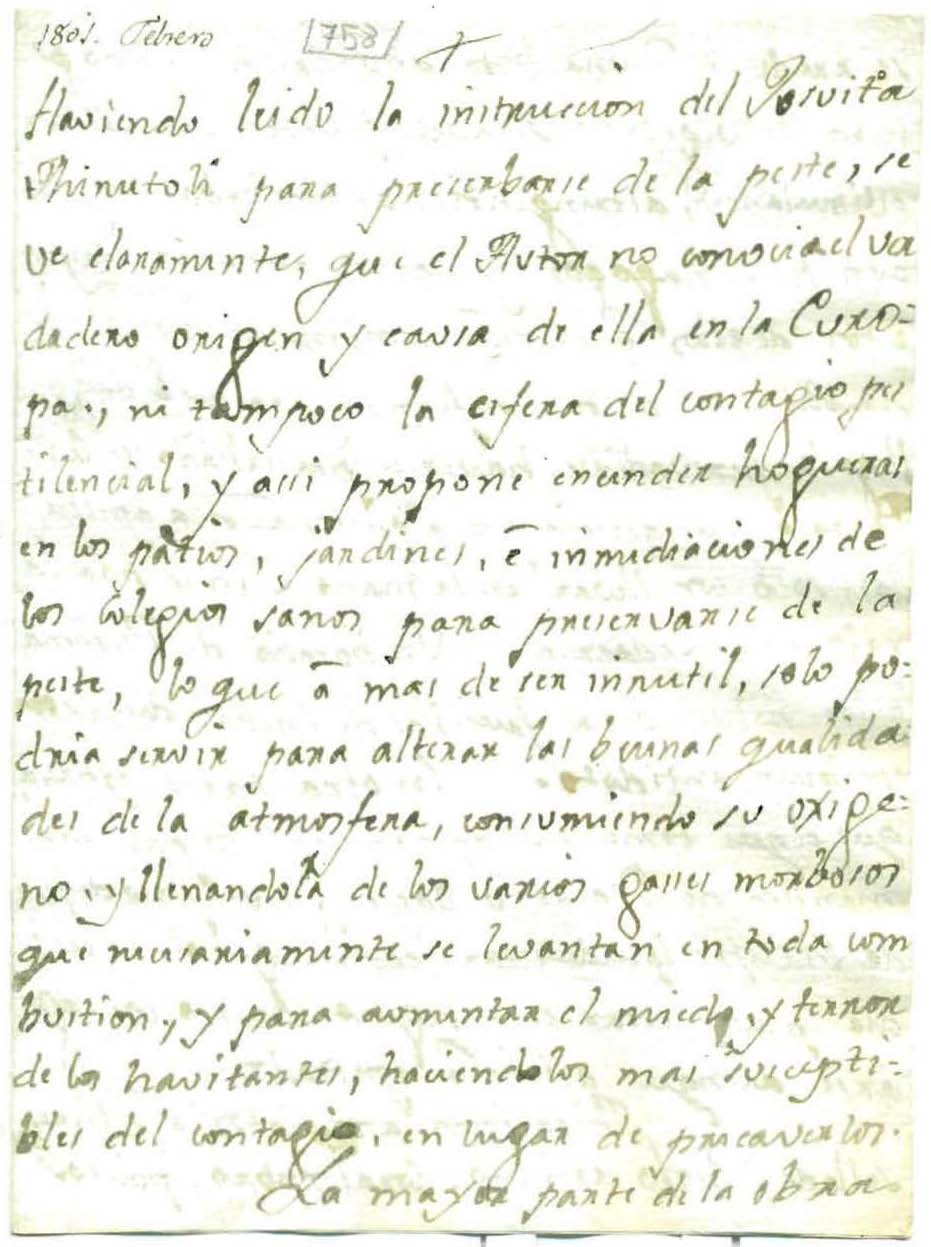 1801. Febrero
758
+
Haviendo leido la instruccion del Jesuita
Minutoli para preserbarse de la peste, se
ve claramente, que el Autor no conocia el ver
dadero origen y causa de ella en la Euro=
pa., ni tampoco la esfera del contagio pes
tilencial, y assi propone encender hogueras
en los patios, jardines, ē inmediaciones de
los Colegios sanos para preservarse de la
peste, lo que ā mas de ser innutil, solo po=
dria servir para alterar las beunas qualida=
des de la atmosfera, consumiendo su oxige=
no, y llenandola de los varios gasses morbosos
que necesariamente se levantan en toda com
bustion, y para aumentar el miedo, y terror
de los havitantes, haciendolos mas suscepti=
bles del contagio, en lugar de precaverlos.
La mayor parte de la obra